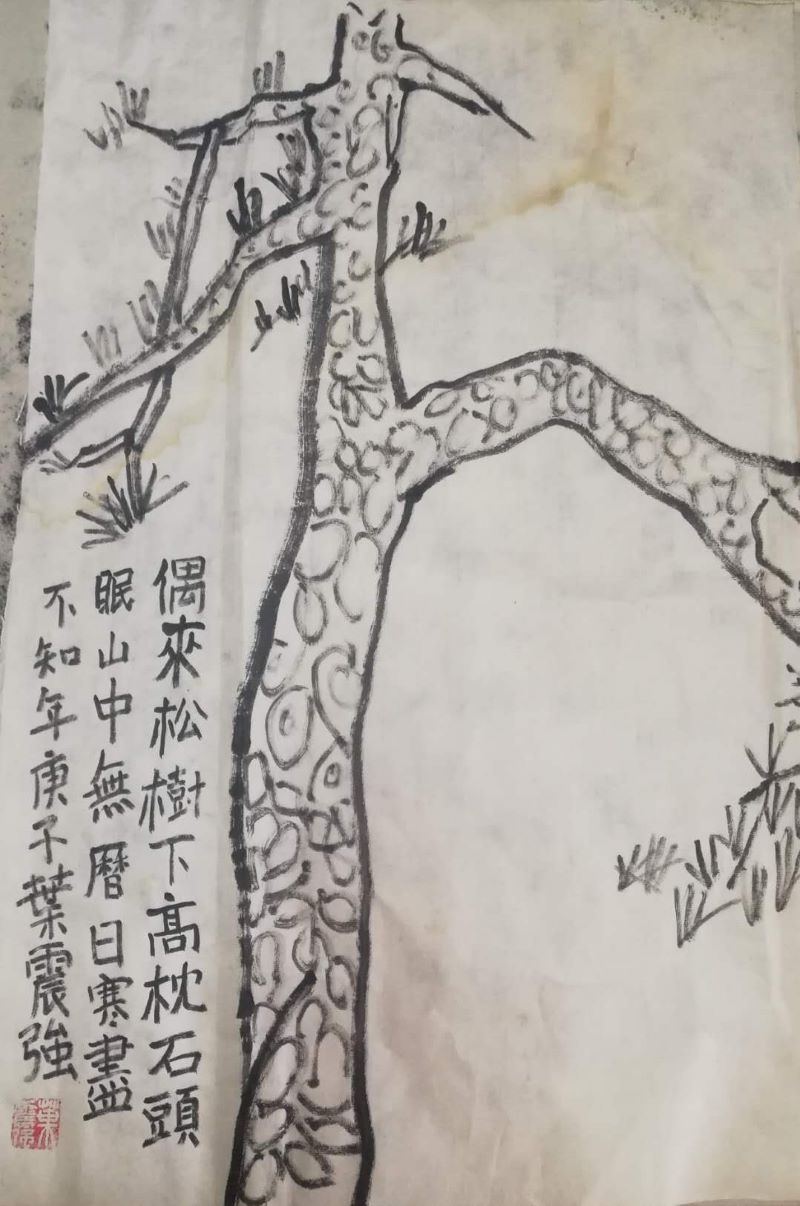 偶來松樹下高枕石頭
眠山中無曆日寒盡
不知年庚子葉震強